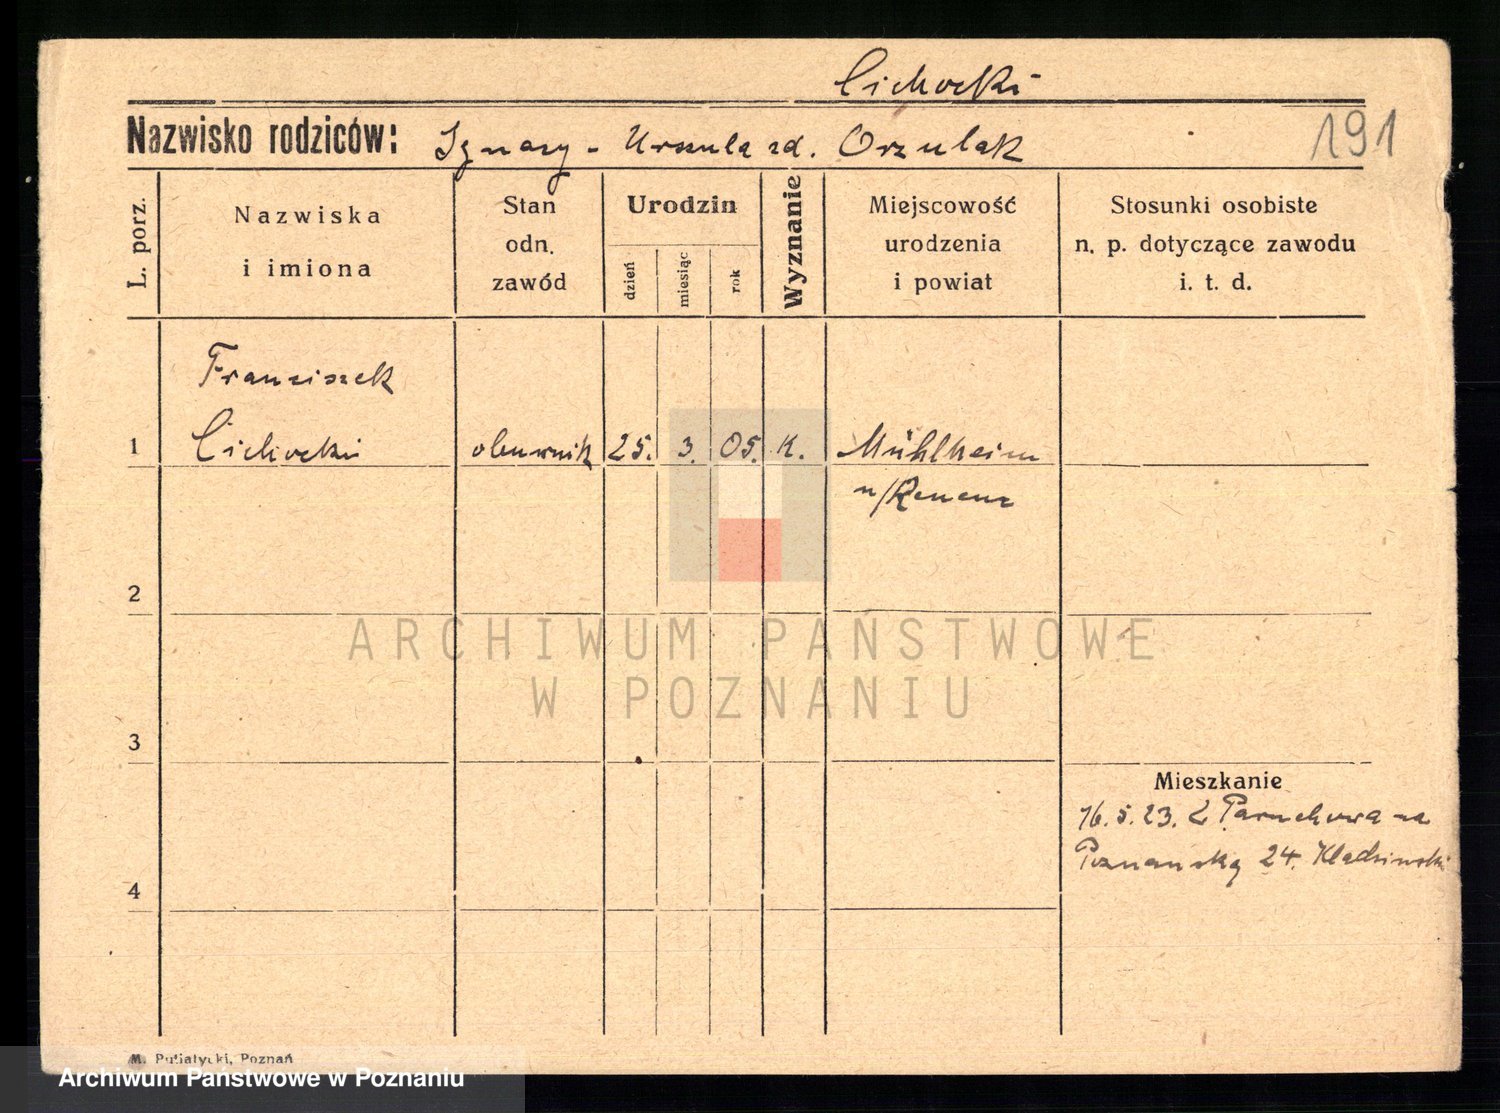 Cichocki
Nazwisko rodziców: Ignacy - Urszula zd. Orzulak
191
L. porz.
Nazwiska
i imiona
Stan
odn.
zawód
Urodzin
dzień
miesiąc
rok
Wyznanie
Miejscowość
urodzenia
i powiat
Stosunki osobiste
n. p. dotyczące zawodu
i. t. d.
Franciszek
1 Cichocki obuwnik 25. 3. 05. K. Mühlheim
n/Renem
2
ARCHIWUM PAŃSTWOWE
W POZNANIU
3
Mieszkanie
16.5.23. z Paruchowa na
Poznańską 24.
4
M. Putiatycki, Poznań
Archiwum Państwowe w Poznaniu